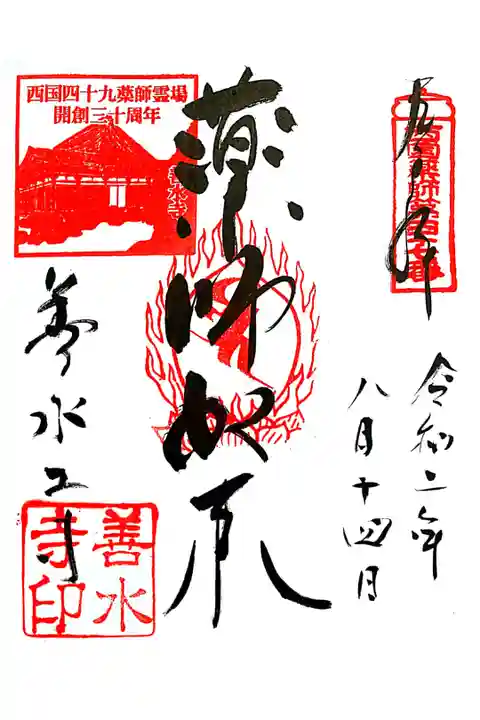 奉拝
令和二年
八月十四日
薬師如来
西国四十九薬師霊場
開創三十周年
善水寺
善水寺
善水
寺印